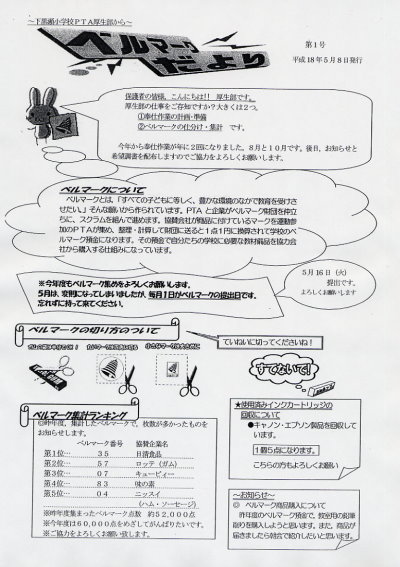 ～下黒瀬小学校PTA厚生部から～
ベルマークだより
第1号
平成18年5月8日発行
保護者の皆様、こんにちは!! 厚生部です。
厚生部の仕事をご存知ですか？大きくは2つ。
①奉仕作業の計画・準備
②ベルマークの仕分け・集計 です。
今年から奉仕作業が年に2回になりました。8月と10月です。後日、お知らせと
希望調書を配布しますのでご協力をよろしくお願いします。
ベルマークについて
ベルマークとは、「すべての子どもに等しく、豊かな環境のなかで教育を受け
させたい。」そんな願いから作られています。PTAと企業がベルマーク財団を仲立
ちに、スクラムを組んで進めます。協賛会社が商品に付けているマークを運動参
加のPTAが集め、整理・計算して財団に送ると1点1円に換算されて学校のベ
ルマーク預金になります。その預金で自分たちの学校に必要な教材備品を協力会
社から購入する仕組みになっています。
5月16日（火）
提出です。
よろしくお願いします
※今年度もベルマーク集めをよろしくお願いします。
5月は、変則になってしまいましたが、毎月1日がベルマークの提出日です。
忘れずに持って来てください。
ベルマークの切り方のついて
ていねいに切ってくださいね！
すてないで!
ベルマーク集計ランキング
◎昨年度、集計したベルマークで、枚数が多かったものを
お知らせします。
ベルマーク番号 協賛企業名
第1位… 35 日清食品
第2位… 57 ロッテ（ガム）
第3位… 07 キューピー
第4位… 83 味の素
第5位… 04 ニッスイ
（ハム・ソーセージ）
※昨年度集まったベルマーク点数 約52,000点
※今年度は60,000点をめざしてがんばりたいです。
※ご協力をよろしくお願い致します。
★使用済みインクカートリッジの
回収について
●キャノン・エプソン製品を回収して
います。
1個5点になります。
こちらの方もよろしくお願い
～お知らせ～
◎ ベルマーク商品購入について
昨年度のベルマーク預金で、教室用の鉛筆
削りを購入しようと思います。また、商品が
届きましたら朝会で紹介したいと思います。